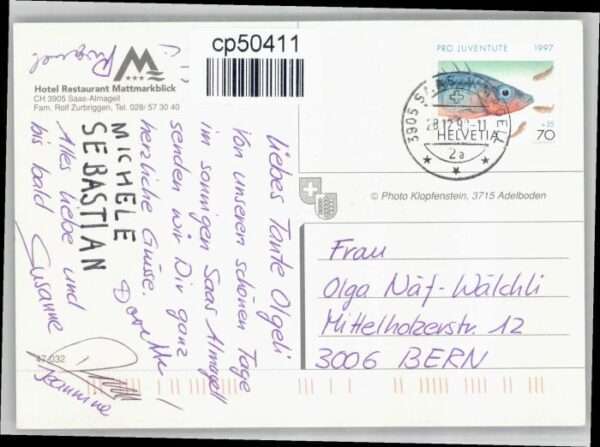 cp50411
PRO JUVENTUTE 1997
HELVETIA 70
+35
3905 SAAS
28.12.9
2a
Hotel Restaurant Mattmarkblick
CH 3905 Saas-Almagell
Fam. Rolf Zurbriggen, Tel. 028/ 57 30 40
© Photo Klopfenstein, 3715 Adelboden
Liebes Tante Olgeli
Von unseren schönen Tage
im sonnigen Saas Almagell
senden wir Dir ganz
herzliche Grüsse.
MICHELE
SEBASTIAN
Alles liebe und
bis bald Susanne
Jeannine
Frau
Olga Näf-Wälchli
Mittelholzerstr. 12
3006 BERN
47 032